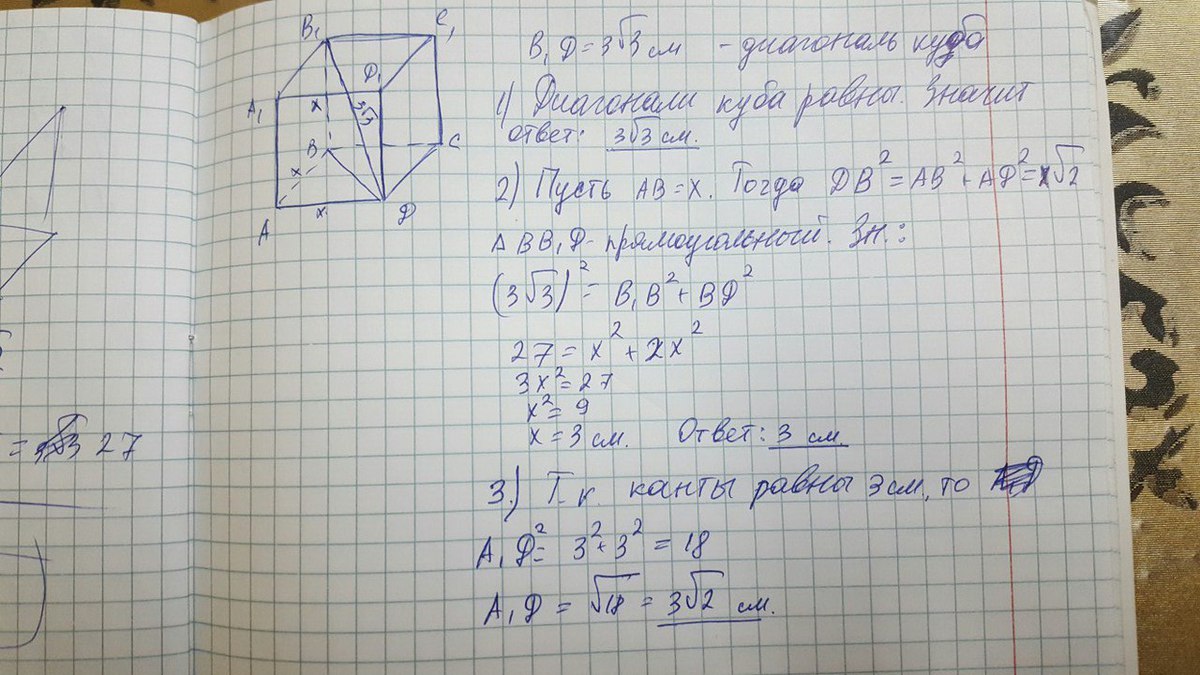 B₁
C₁
A₁
Д₁
x
3√3
B
C
x
A
x
Д
= 27
B₁Д = 3√3 см - диагональ куба
1) Диагонали куба равны. Значит
ответ: 3√3 см.
2) Пусть AB = X. Тогда DB² = AB² + AД² = x√2
Δ BB₁Д - прямоугольный. Зн.:
(3√3)² = B₁B² + BД²
27 = x² + 2x²
3x² = 27
x² = 9
x = 3 см. Ответ: 3 см.
3.) Т.к. канты равны 3 см, то
A₁Д² = 3² + 3² = 18
A₁Д = √18 = 3√2 см.